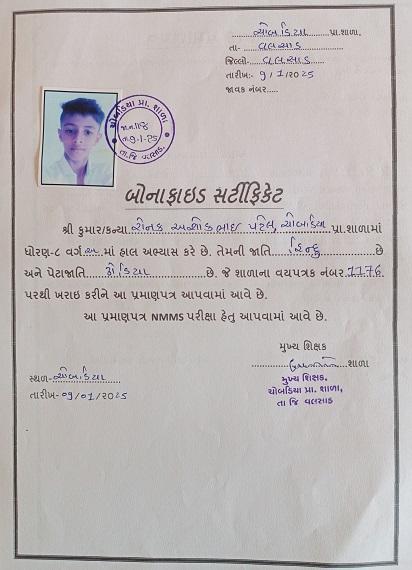 ચોબડિયા પ્રા.શાળા,
તા- વલસાડ
જિલ્લો- વલસાડ
તારીખ:- 9/1/2025
જાવક નંબર.....
ચોબડિયા પ્રા. શાળા
તા.9-1-25
તા.જિ વલસાડ.
બોનાફાઇડ સર્ટીફિકેટ
શ્રી કુમાર/કન્યા રોનક અશોકભાઇ પટેલ, ચોબડિયા પ્રા.શાળામાં
ધોરણ-૮ વર્ગ અ માં હાલ અભ્યાસ કરે છે. તેમની જાતિ હિન્દુ છે
અને પેટાજાતિ ઢોડિયા છે. જે શાળાના વયપત્રક નંબર 1176
પરથી ખરાઇ કરીને આ પ્રમાણપત્ર આપવામાં આવે છે.
આ પ્રમાણપત્ર NMMS પરીક્ષા હેતુ આપવામાં આવે છે.
મુખ્ય શિક્ષક
શાળા
સ્થળ- ચોબડિયા
તારીખ- 09/01/2025
મુખ્ય શિક્ષક.
ચોબડિયા પ્રા. શાળા,
તા જિ વલસાડ